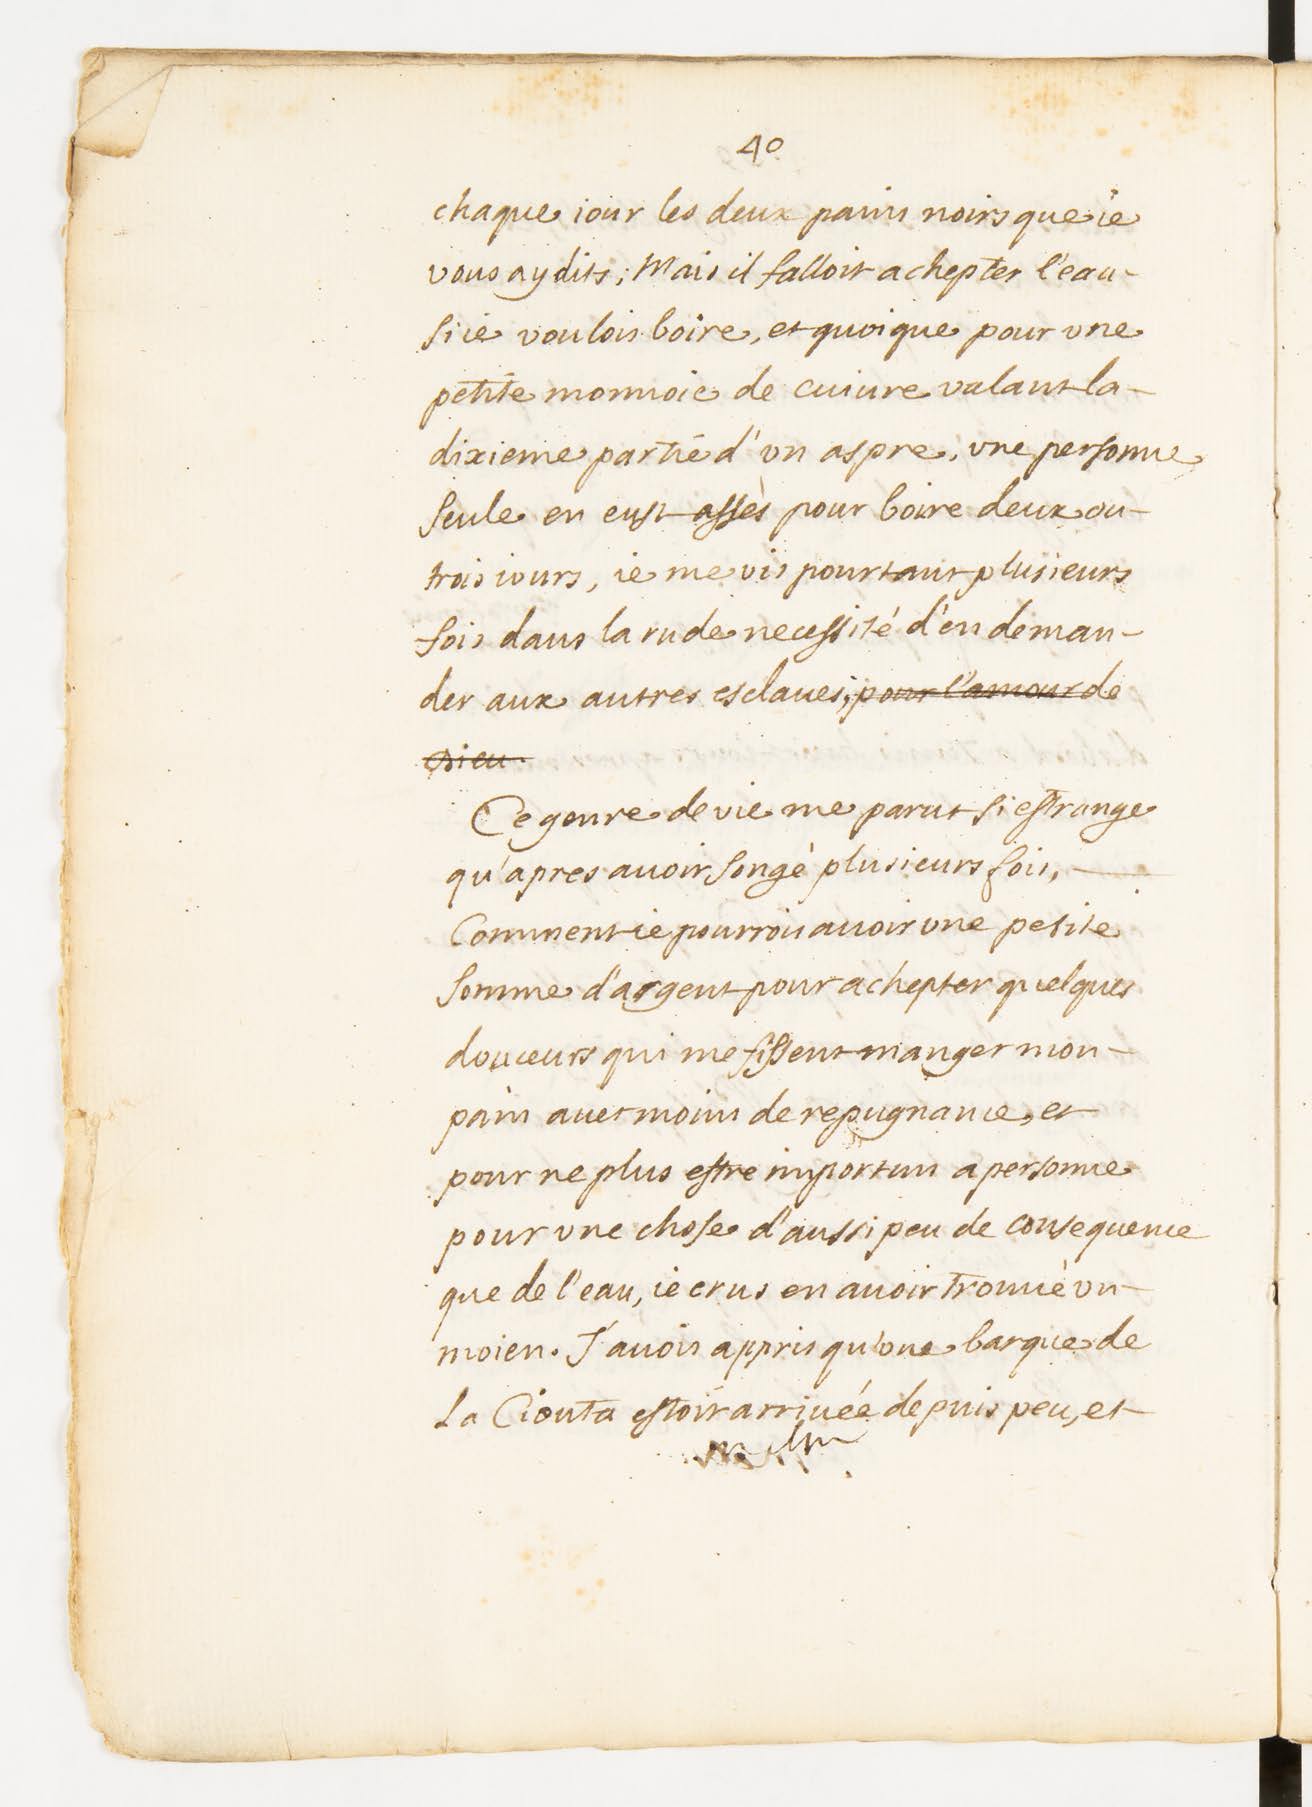 40
chaque iour les deux pains noirs que ie
vous ay dits; Mais il falloit achepter l'eau
si ie voulois boire, et quoique pour vne
petite monnoie de cuiure valant la
dixieme partie d'vn aspre, vne personne
seule en eust assès pour boire deux ou
trois iours, ie me vis pourtant plusieurs
fois dans la rude necessité d'en deman-
der aux autres esclaues, pour l'amour de
Dieu.
Ce genre de vie me parut si estrange
qu'apres auoir songé plusieurs fois,
Comment ie pourrois auoir vne petite
somme d'argent pour achepter quelques
douceurs qui me fissent manger mon
pain auec moins de repugnance, et
pour ne plus estre importun a personne
pour vne chose d'aussi peu de consequence
que de l'eau, ie crus en auoir trouué vn
moien. J'auois appris qu'vne barque de
La Cioutà estoit arriuée depuis peu, et